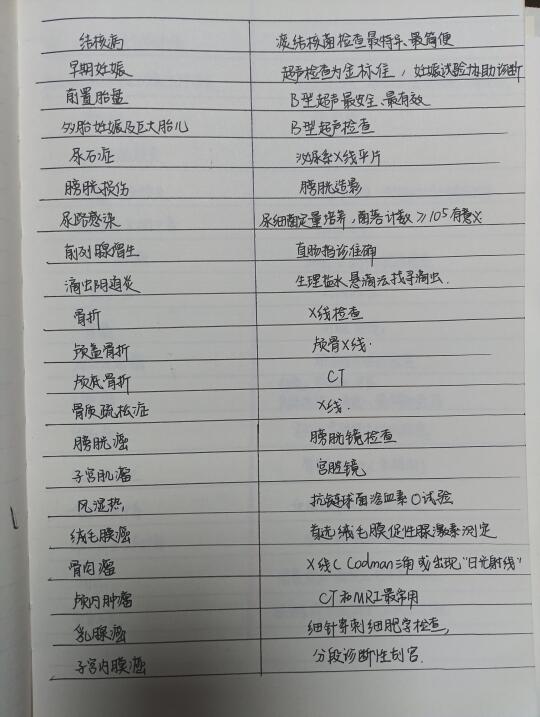 结核病 痰结核菌检查最特异、最简便
早期妊娠 超声检查为金标准，妊娠试验协助诊断
前置胎盘 B型超声最安全、最有效
多胎妊娠及巨大胎儿 B型超声检查
尿石症 泌尿系X线平片
膀胱损伤 膀胱造影
尿路感染 尿细菌定量培养，菌落计数≥10⁵有意义
前列腺增生 直肠指诊准确
滴虫阴道炎 生理盐水悬滴法找寻滴虫.
骨折 X线检查
颅盖骨折 颅骨X线.
颅底骨折 CT
骨质疏松症 X线.
膀胱癌 膀胱镜检查
子宫肌瘤 宫腔镜
风湿热, 抗链球菌溶血素O试验
绒毛膜癌 首选绒毛膜促性腺激素测定
骨肉瘤 X线( Codman三角或出现"日光射线"
颅内肿瘤 CT和MRI最常用
乳腺癌 细针穿刺细胞学检查,
子宫内膜癌 分段诊断性刮宫.